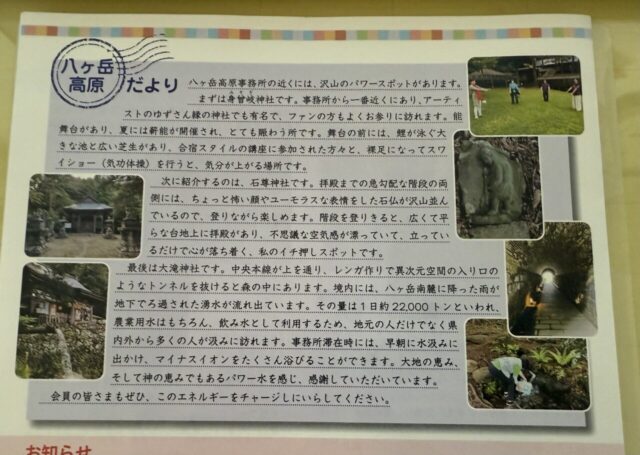 八ヶ岳
高原 だより
八ヶ岳高原事務所の近くには、沢山のパワースポットがあります。
まずは身曾岐神社です。事務所から一番近くにあり、アーティ
ストのゆずさん縁の神社でも有名で、ファンの方もよくお参りに訪れます。能
舞台があり、夏には薪能が開催され、とても賑わう所です。舞台の前には、鯉が泳ぐ大
きな池と広い芝生があり、合宿スタイルの講座に参加された方々と、裸足になってスワ
イショー（気功体操）を行うと、気分が上がる場所です。
次に紹介するのは、石尊神社です。拝殿までの急勾配な階段の両
側には、ちょっと怖い顔やユーモラスな表情をした石仏が沢山並ん
でいるので、登りながら楽しめます。階段を登りきると、広くて平
らな台地上に拝殿があり、不思議な空気感が漂っていて、立ってい
るだけで心が落ち着く、私のイチ押しスポットです。
最後は大滝神社です。中央本線が上を通り、レンガ作りで異次元空間の入り口の
ようなトンネルを抜けると森の中にあります。境内には、八ヶ岳南麓に降った雨が
地下でろ過された湧水が流れ出ています。その量は1日約22,000トンといわれ、
農業用水はもちろん、飲み水として利用するため、地元の人だけでなく県
内外から多くの人が汲みに訪れます。事務所滞在時には、早朝に水汲みに
出かけ、マイナスイオンをたくさん浴びることができます。大地の恵み、
そして神の恵みでもあるパワー水を感じ、感謝していただいています。
会員の皆さまもぜひ、このエネルギーをチャージしにいらしてください。
お知らせ